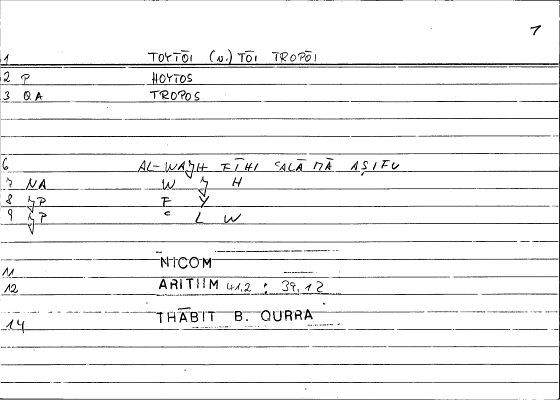 1
1 TOYTŌI (N.) TŌI TROPŌI
2 P HOYTOS
3 QA TROPOS
6 AL-WAJH FĪHI ʿALĀ MĀ AṢIFU
7 NA W J H
8 JP F Y
9 JP ʿ L W
11 NICOM
12 ARITIIM 41,2 : 39,12
14 THĀBIT B. QURRA